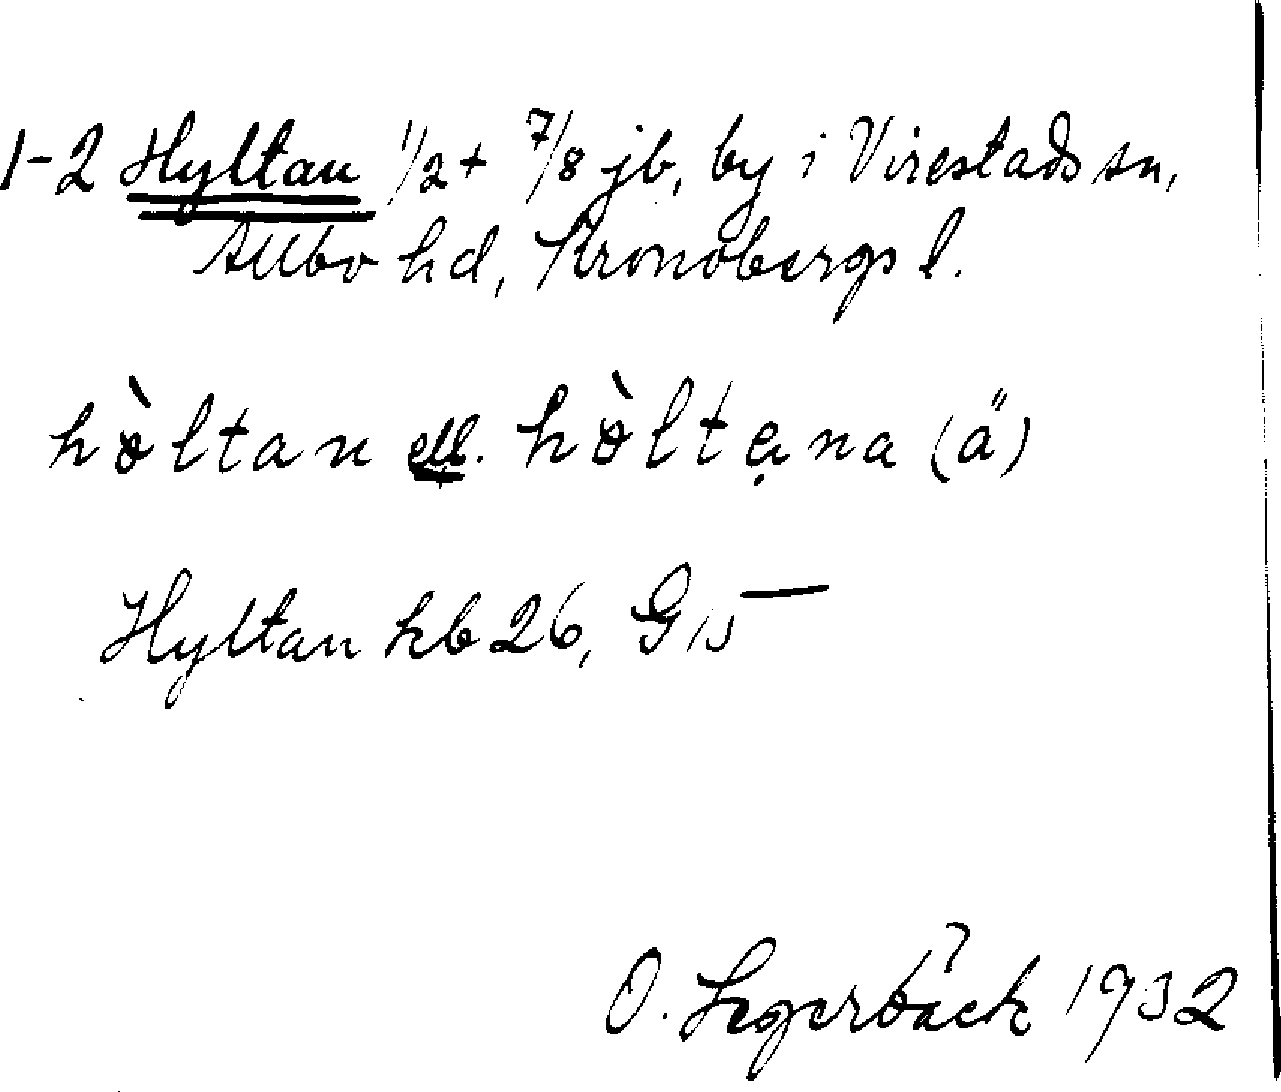 1-2 Hyltan 1/2 + 7/8 jb, by i Virestads sn,
Allbo hd, Kronobergs l.
hòltan ell. hòltạna (ä)
Hyltan kb 26, G 15
O. Segerbäck 1932